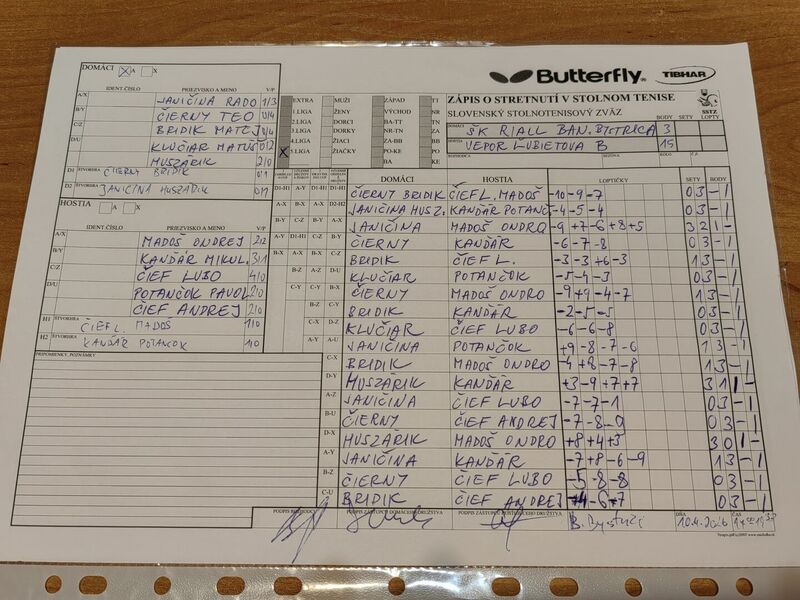 DOMÁCI X A X
IDENT.ČÍSLO PRIEZVISKO A MENO V/P
A/X JANIČINA RADO 1/3
B/Y ČIERNY TEO 0/4
C/Z BRIDIK MATEJ 0/4
D/U KĽUČIAR MATÚŠ 0/2
HUSZÁRIK 2/0
D1 ŠTVORHRA ČIERNY BRIDIK 0/1
D2 ŠTVORHRA JANIČINA HUSZÁRIK 0/1
HOSTIA A X
IDENT.ČÍSLO PRIEZVISKO A MENO V/P
A/X MADOŠ ONDREJ 2/2
B/Y KANDÁR MIKUL. 3/1
C/Z ČIEF LUBO 4/0
D/U POTANČOK PAVOL 2/0
ČIEF ANDREJ 2/0
H1 ŠTVORHRA ČIEF L. MADOŠ 1/0
H2 ŠTVORHRA KANDÁR POTANČOK 1/0
PRIPOMIENKY, POZNÁMKY
Butterfly TIBHAR
EXTRA MUŽI ZÁPAD TT
1.LIGA ŽENY VÝCHOD NR
2.LIGA DORCI BA-TT TN
3.LIGA DORKY NR-TN ZA
4.LIGA ŽIACI ZA-BB BB
X 5.LIGA ŽIAČKY PO-KE PO
BA KE
ZÁPIS O STRETNUTÍ V STOLNOM TENISE
SLOVENSKÝ STOLNOTENISOVÝ ZVÄZ
SSTZ
BODY SETY LOPTY
DOMÁCI ŠK RIALL BAN. BYSTRICA 3
HOSTIA VEPOR ĽUBIETOVÁ B 15
ROZHODCA SEZÓNA KOLO
DOMÁCI HOSTIA LOPTIČKY SETY BODY
ČIERNY BRIDIK ČIEF L. MADOŠ -10 -9 -7 0 3 -1
JANIČINA HUSZ. KANDÁR POTANČ -4 -5 -4 0 3 -1
JANIČINA MADOŠ ONDRO -9 +7 -6 +8 +5 3 2 1 -
ČIERNY KANDÁR -6 -7 -8 0 3 -1
BRIDIK ČIEF L. -3 -3 +6 -3 1 3 -1
KLUČIAR POTANČOK -5 -4 -3 0 3 -1
ČIERNY MADOŠ ONDRO -9 +9 -4 -7 1 3 -1
BRIDIK KANDÁR -2 -5 -5 0 3 -1
KLUČIAR ČIEF LUBO -6 -6 -8 0 3 -1
JANIČINA POTANČOK +9 -8 -7 -6 1 3 -1
C-X BRIDIK MADOŠ ONDRO -4 +8 -7 -8 1 3 -1
D-Y HUSZÁRIK KANDÁR +3 -9 +7 +7 3 1 1 -
A-Z JANIČINA ČIEF LUBO -7 -7 -1 0 3 -1
B-U ČIERNY ČIEF ANDREJ -7 -8 -9 0 3 -1
D-X HUSZÁRIK MADOŠ ONDRO +8 +4 +3 3 0 1 -
A-Y JANIČINA KANDÁR -7 +8 -6 -9 1 3 -1
B-Z ČIERNY ČIEF LUBO -5 -8 -8 0 3 -1
C-U BRIDIK ČIEF ANDREJ -4 -6 -7 0 3 -1
PODPIS ROZHODCU PODPIS ZÁSTUPCU DOMÁCEHO DRUŽSTVA PODPIS ZÁSTUPCU HOSŤUJÚCEHO DRUŽSTVA B. Bystrici DŇA 10.4.2026 ČAS